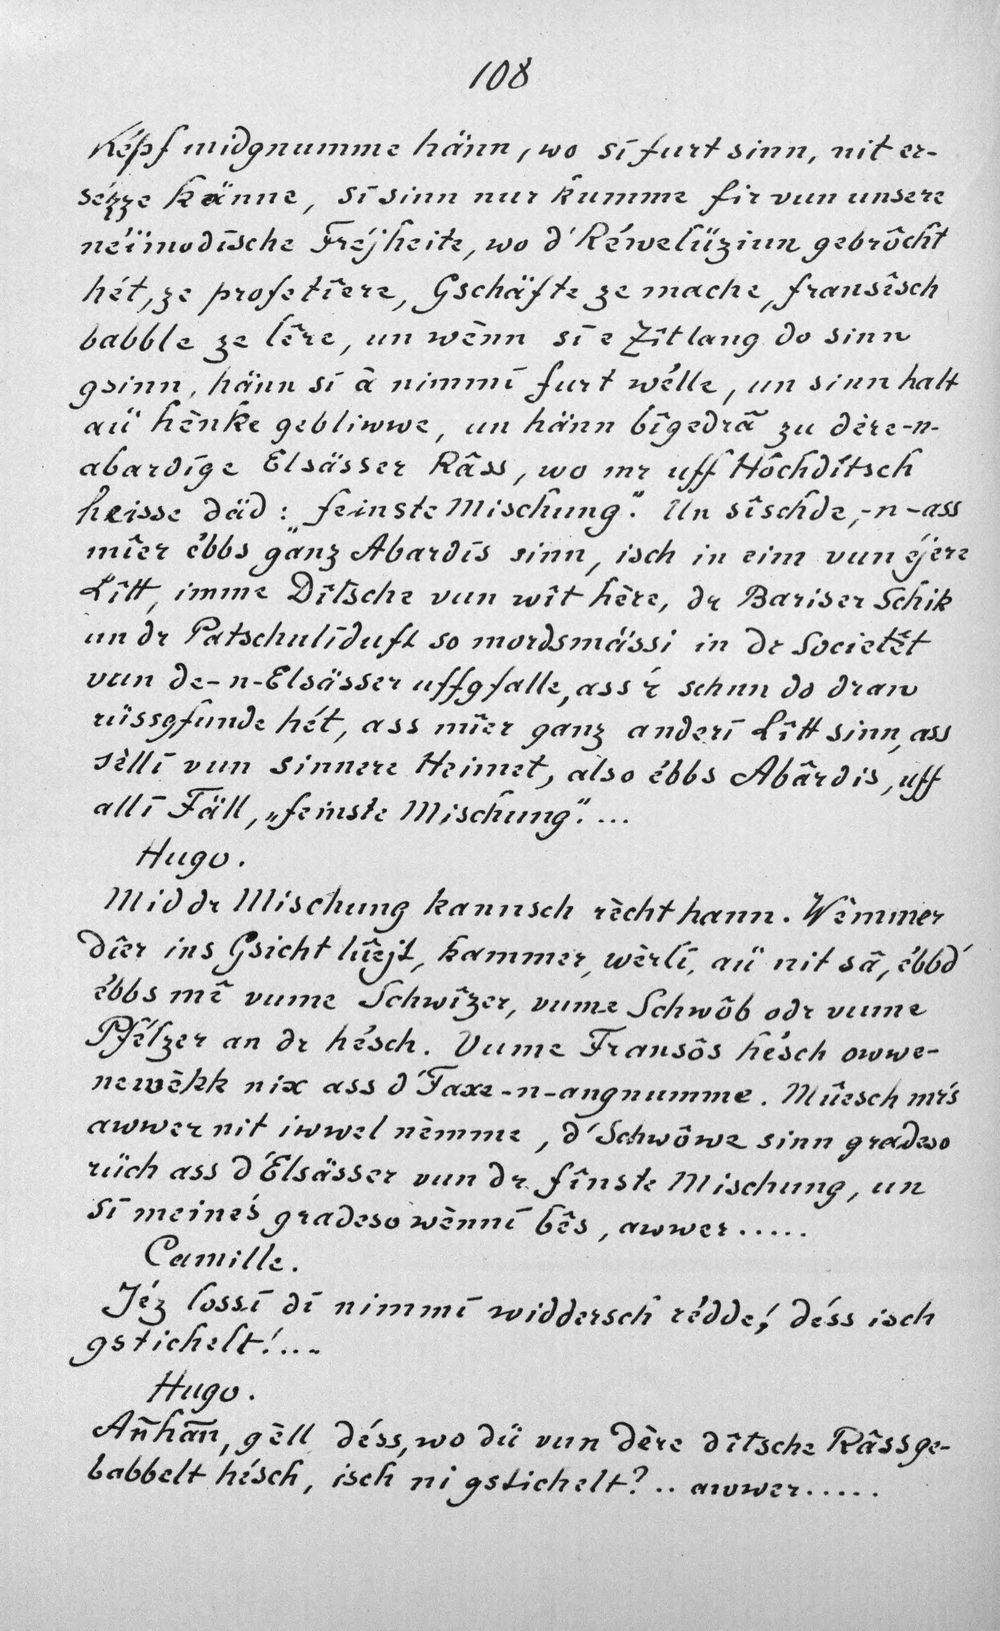 108
Képf midgnumme hänn, wo sī furt sinn, nit er-
sézze känne, sī sinn nur kumme fir vun unsere
néïmodīsche Fréjheite, wo d'Réwelüziun gebrôcht
hét, ze profetîere, Gschäfte ze mache, fransîsch
babble ze lêre, un wènn sī e Zîtlang do sinn
gsinn, hänn sī à nimmī furt wélle, un sinn halt
aü hènke gebliwwe, un hänn bîgedrã zu dère-n-
abardīge Elsässer Râss, wo mr uff Hôchdîtsch
heisse däd: „feinste Mischung“. Un sîschde,-n-ass
mîer ébbs ganz Abardīs sinn, isch in eim vun éjere
Lîtt, imme Dîtsche vun wît hère, dr Bariser Schik
un dr Patschulīduft so mordsmässi in dr Societêt
vun de-n-Elsässer uffgfalle, ass'r schun do dran
rüssgfunde hét, ass mîer ganz anderī Lîtt sinn, ass
sèllī vun sinnere Heimet, also ébbs Abârdis, uff
allī Fäll, „feinste Mischung“....
Hugo.
Mid dr Mischung kannsch rècht hann. Wèmmer
dîer ins Gsicht lûejt, kammer, wèrlī, aü nit sâ, ébbd'
ébbs mê vume Schwîzer, vume Schwôb odr vume
Pfélzer an dr hésch. Vume Fransôs hésch owwe-
newèkk nix ass d'Faxe-n-angnumme. Mûesch mr's
awwer nit iwwel nèmme, d'Schwôwe sinn gradeso
rüch ass d'Elsässer vun dr fînste Mischung, un
sī meine's gradeso wènnī bês, awwer.....
Camille.
Jéz lossī dī nimmī widdersch rédde! déss isch
gstichelt!...
Hugo.
Añhãñ, gèll déss, wo dü vun dère dîtsche Râss ge-
babbelt hésch, isch ni gstichelt?.. awwer.....